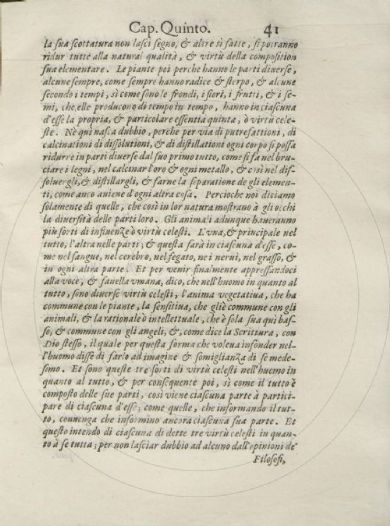 Cap. Quinto. 41
la sua scottatura non lasci segno, & altre sì fatte, si potranno
ridur tutte alla natural qualità, & virtù della composition
sua elementare. Le piante poi perche hanno le parti diuerse,
alcune sempre, come sempre hanno radice & sterpo, & alcune
secondo i tempi, sì come sono le frondi, i fiori, i frutti, & i se-
mi, che elle producono di tempo in tempo, hanno in ciascuna
d'esse la propria, & particolare essentia quinta, ò virtù cele-
ste. Nè qui nasca dubbio, perche per via di putrefattioni, di
calcinationi di dissolutioni, & di distillationi ogni corpo si possa
ridurre in parti diuerse dal suo primo tutto, come si fa nel bru-
ciare i legni, nel calcinar l'oro & ogni metallo, & così nel dis-
soluergli, & distillargli, & farne la separatione de gli elemen-
ti, come anco auiene d'ogni altra cosa. Percioche noi diciamo
solamente di quelle, che così in lor natura mostrano à gli occhi
la diuersità delle parti loro. Gli animali adunque haueranno
più sorti di influenze ò virtù celesti. L'vna, & principale nel
tutto, l'altra nelle parti, & questa sarà in ciascuna d'esse, co-
me nel sangue, nel cerebro, nel fegato, ne i nerui, nel grasso, &
in ogni altra parte. Et per venir finalmente appressandoci
alla voce, & fauella vmana, dico, che nell'huomo in quanto al
tutto, sono diuerse virtù celesti, l'anima vegetatiua, che ha
commune con le piante, la sensitiua, che gliè commune con gli
animali, & la rationale ò intellettuale, che è sola sua quì bas-
so, & commune con gli angeli, &, come dice la Scrittura, con
Dio stesso, il quale per questa forma che voleua infonder nel-
l'huomo disse di farlo ad imagine & somiglianza di se mede-
simo. Et sono queste tre sorti di virtù celesti nell'huomo in
quanto al tutto, & per conseguente poi, sì come il tutto è
composto delle sue parti, così viene ciascuna parte à partici-
pare di ciascuna d'esse; come quelle, che informando il tut-
to, conuenga che informino ancora ciascuna sua parte. Et
questo intendo di ciascuna di dette tre virtù celesti in quan-
to à se tutta; per non lasciar dubbio ad alcuno dall'opinioni de'
Filosofi,